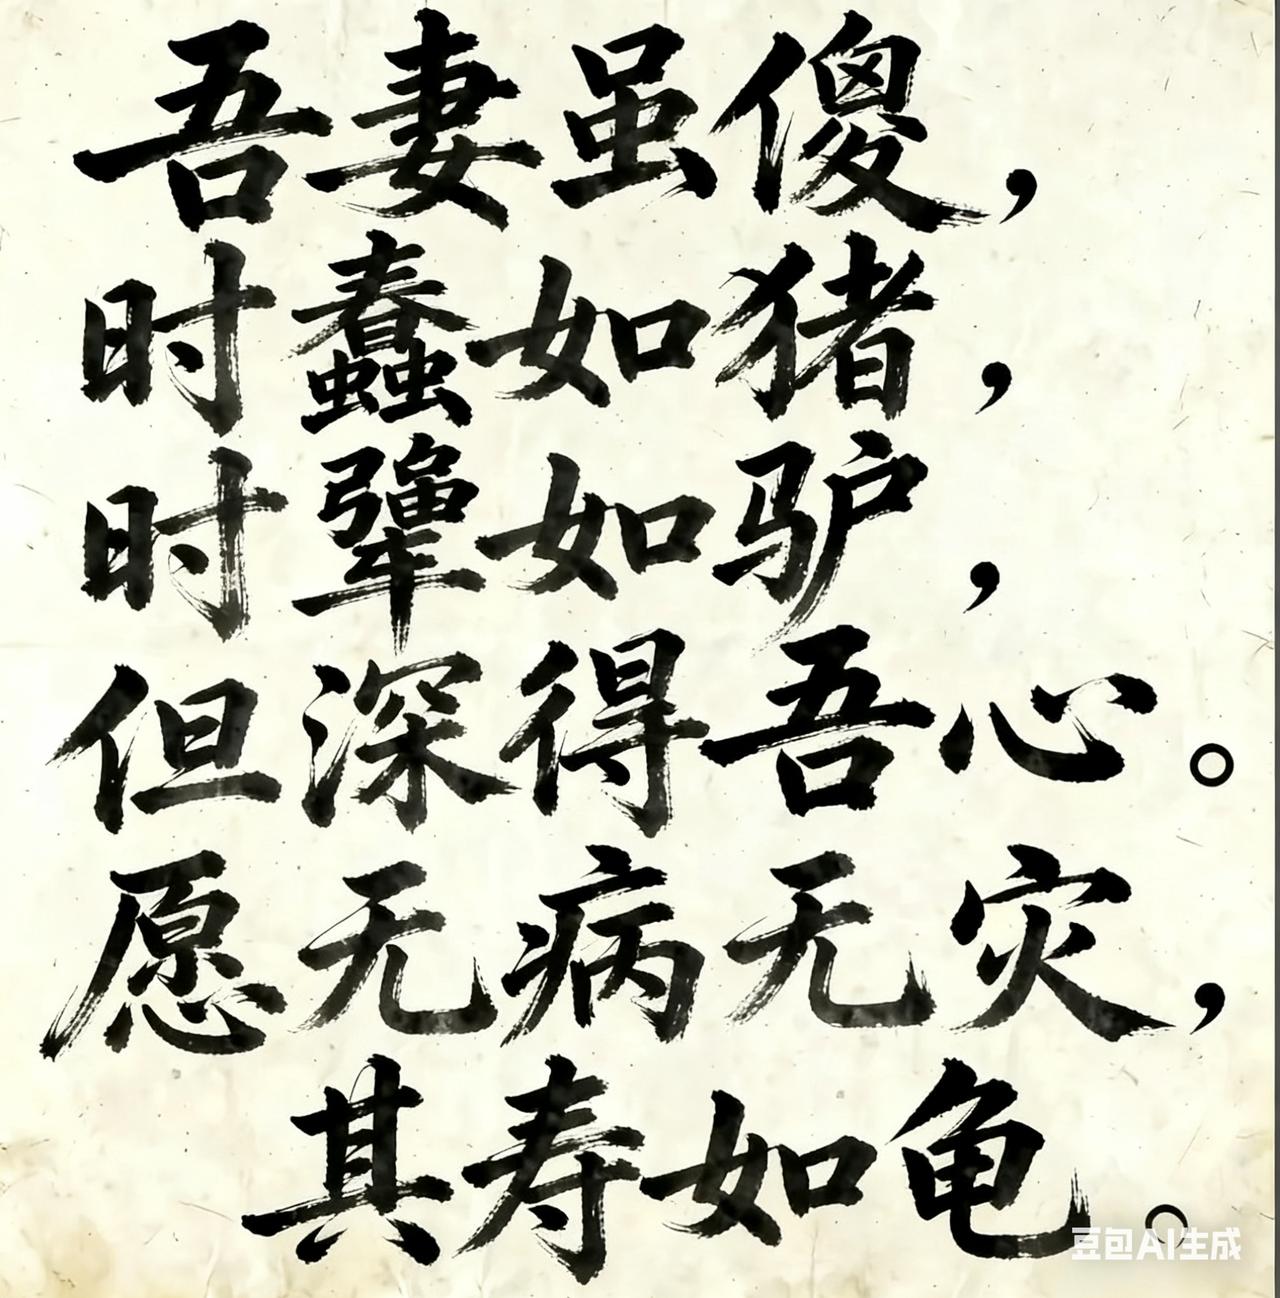 吾妻虽傻，
时蠢如猪，
时犟如驴，
但深得吾心。
愿无病无灾，
其寿如龟。
豆包AI生成